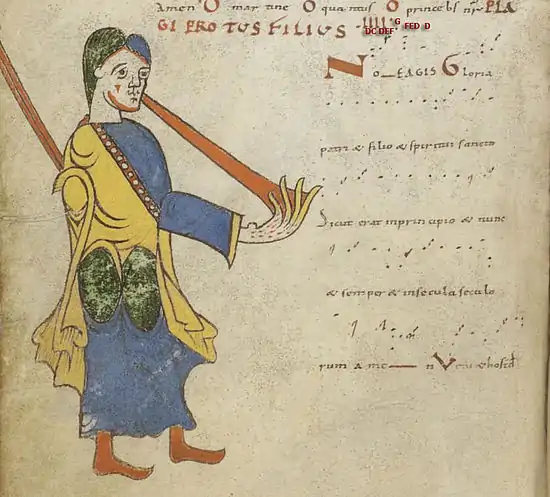 Amen O mar tine O quantus O princebs
PLA
GI PROTUS FILIUS G
DC DEF FED D
NO EAGIS Gloria
patri & filio & spiritui sancto
Sicut erat inprincipio & nunc
& semper & insecula seculo
rum a me n